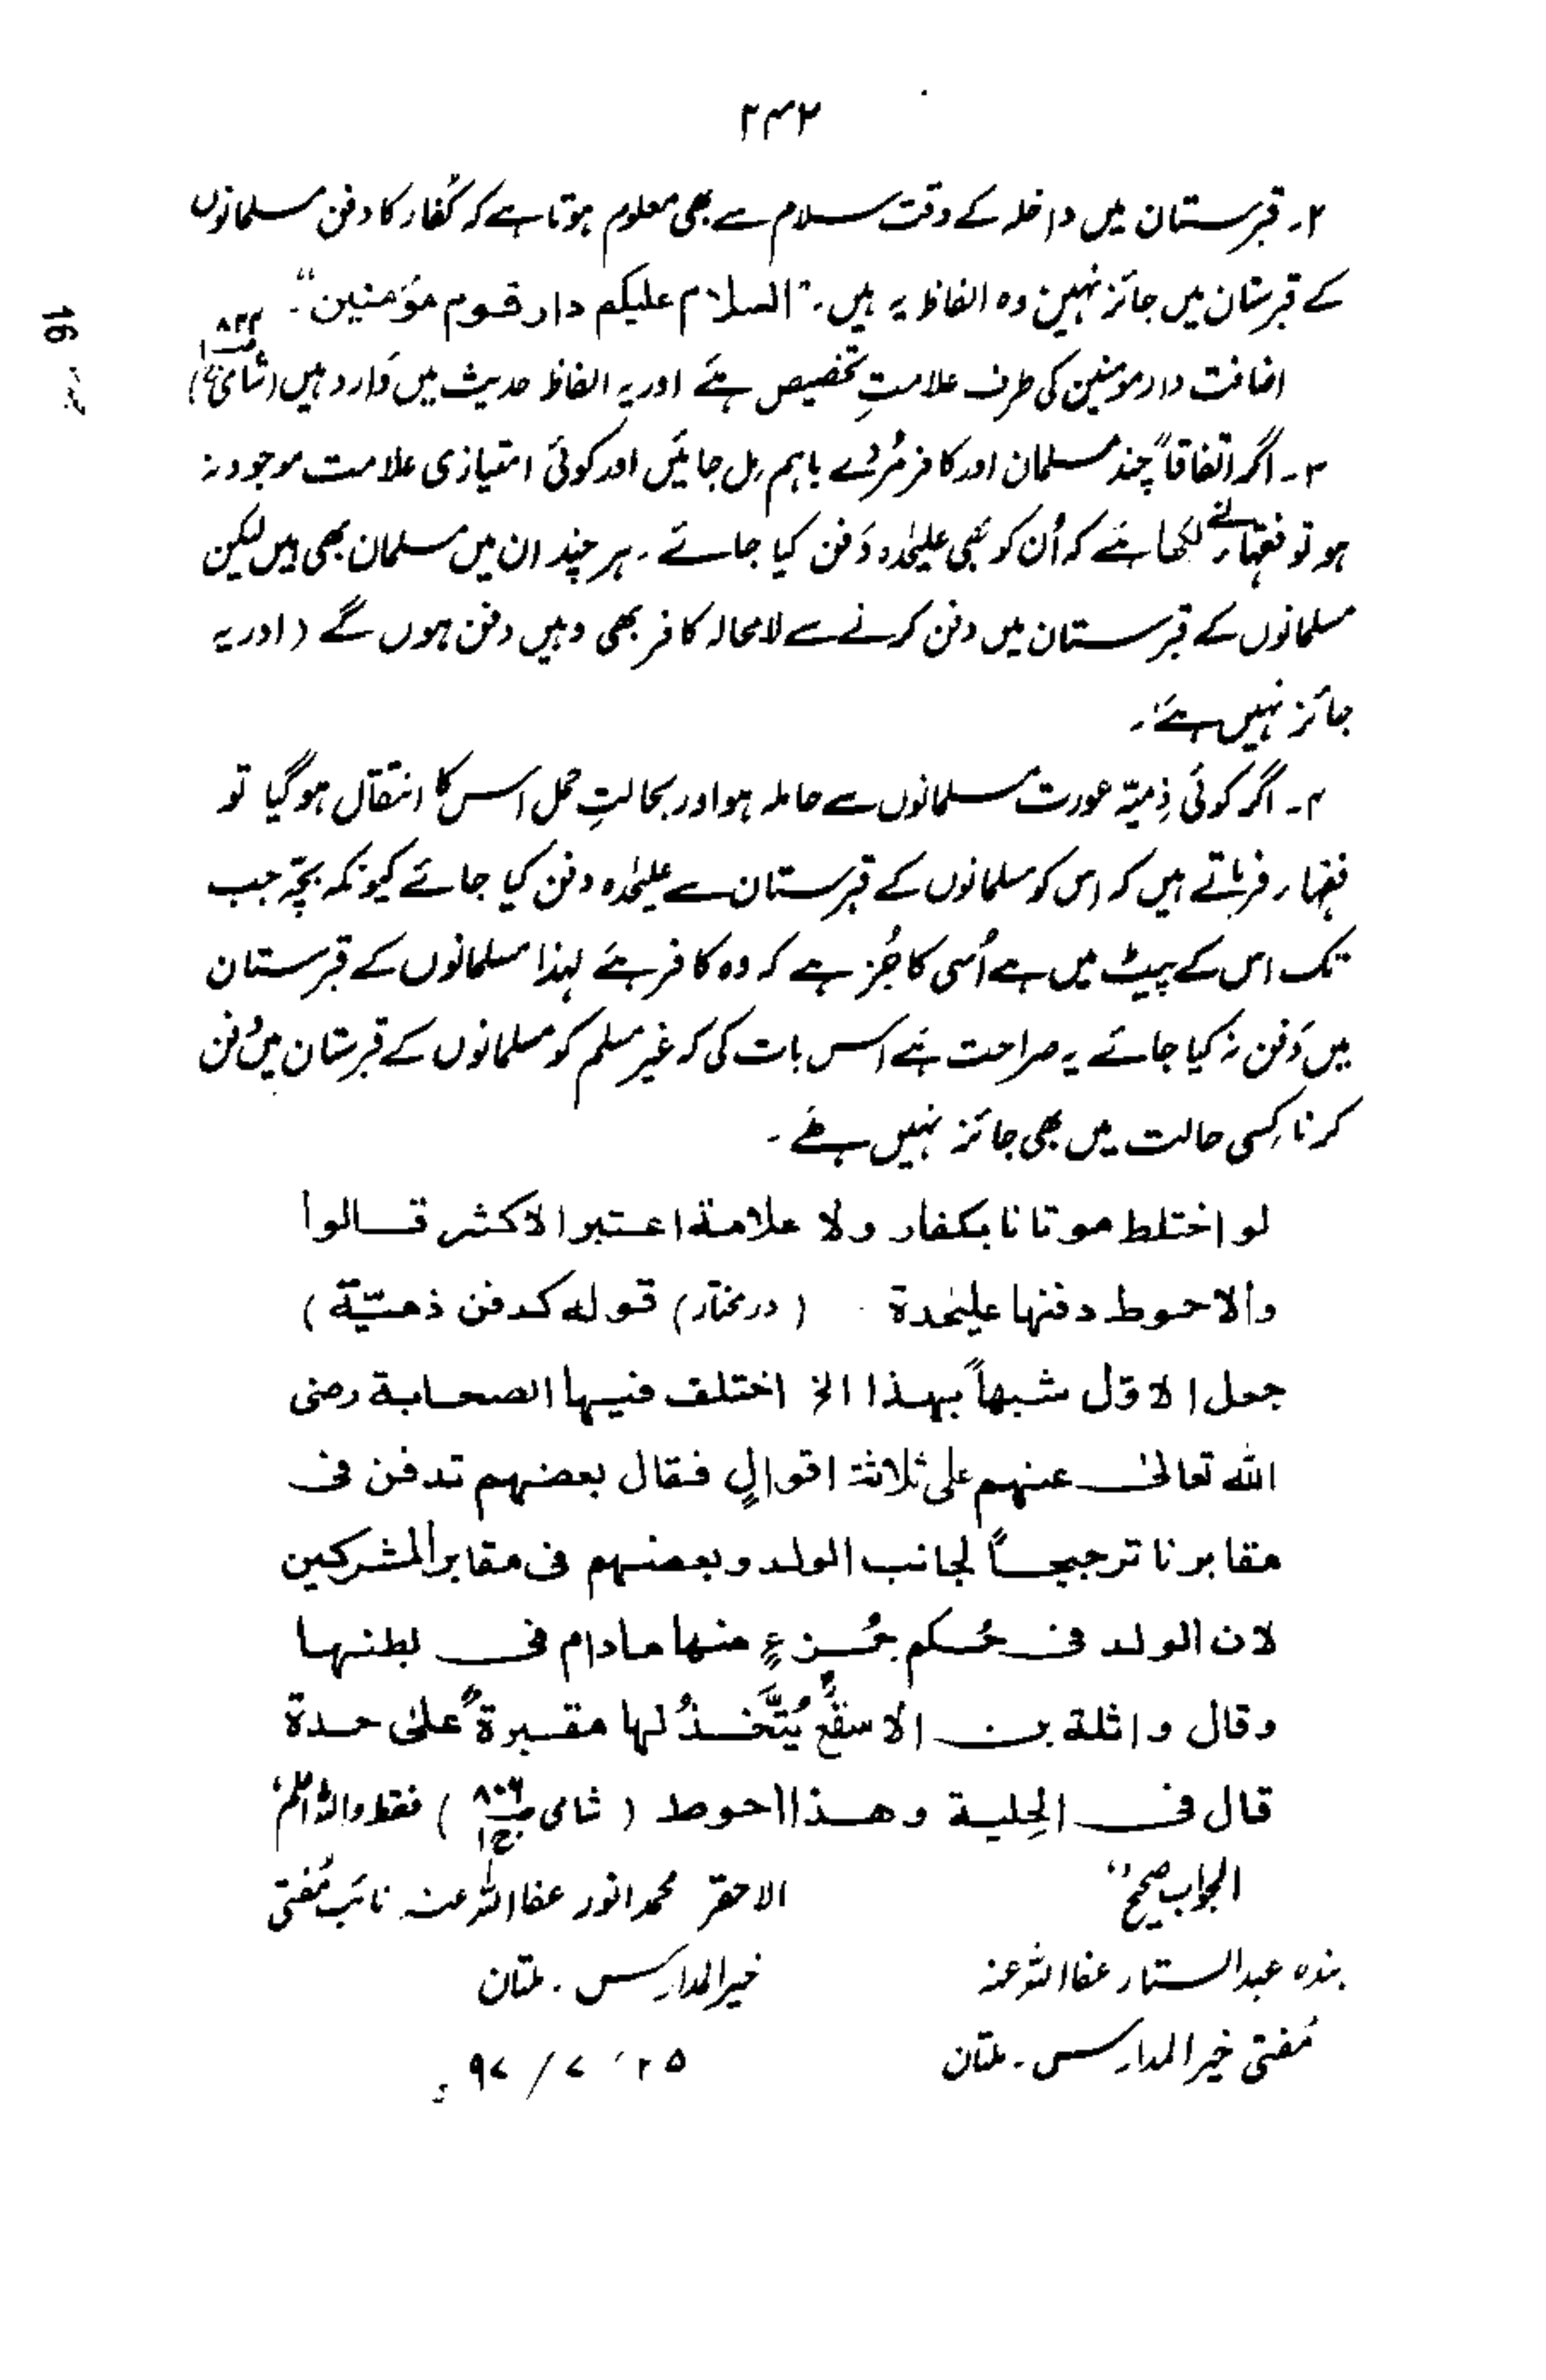 ۲۴۲
۲۔ قبرستان میں داخلہ کے وقت سلام سے بھی معلوم ہوتا ہے کہ کفار کا دفن مسلمانوں
کے قبرستان میں جائز نہیں وہ الفاظ یہ ہیں۔ "السلام علیکم دار قوم مؤمنین"۔
اضافت دار مومنین کی طرف علامتِ تخصیص ہے اور یہ الفاظ حدیث میں وارد ہیں (شامی)
۳۔ اگر اتفاقاً چند مسلمان اور کافر مُردے باہم رل جائیں اور کوئی امتیازی علامت موجود نہ
ہو تو فقہاء نے لکھا ہے کہ اُن کو بھی علیحٰدہ دَفن کیا جائے ۔ ہر چند ان میں مسلمان بھی ہیں لیکن
مسلمانوں کے قبرستان میں دفن کرنے سے لامحالہ کافر بھی وہیں دفن ہوں گے (اور یہ
جائز نہیں ہے۔
۴۔ اگر کوئی ذِمیّہ عورت مسلمانوں سے حاملہ ہو اور بحالتِ حمل اس کا انتقال ہو گیا تو
فقہاء فرماتے ہیں کہ اس کو مسلمانوں کے قبرستان سے علیحٰدہ دفن کیا جائے کیونکہ بچّہ جب
تک اس کے پیٹ میں ہے اُسی کا جُز ہے کہ وہ کافر ہے لہذا مسلمانوں کے قبرستان
میں دَفن نہ کیا جائے یہ صراحت ہے اس بات کی کہ غیر مسلم کو مسلمانوں کے قبرستان میں دُفن
کرنا کِسی حالت میں بھی جائز نہیں ہے ۔
لو اختلط موتانا بکفار ولا علامة اعتبر الاکثر قالوا
والاحوط دفنها علیٰحدة (درمختار) قوله کدفن ذمیّة)
جعل الاوّل شبهاً بهذا الخ اختلف فیها الصحابة رضی
الله تعالیٰ عنهم علی ثلاثة اقوالٍ فقال بعضهم تدفن فی
مقابرنا ترجیحاً لجانب الولد وبعضهم فی مقابر المشرکین
لان الولد فی حُکم جُزءٍ منها مادام فی بطنها
وقال واثلة بن الاسقعؓ یُتَّخذُ لها مقبرةً علیٰ حدة
قال فی الحِلیة وهذا احوط (شامی ص۸۰۶ ج۱) فقط واللہ اعلم،
الجواب صحیح، الاحقر محمد انور عفا اللہ عنہ نائب مُفتی
بندہ عبدالستار عفا اللہ عنہ خیر المدارس ۔ ملتان
مُفتی خیر المدارس ۔ ملتان ۲۵ / ۷ / ۹۷ ء